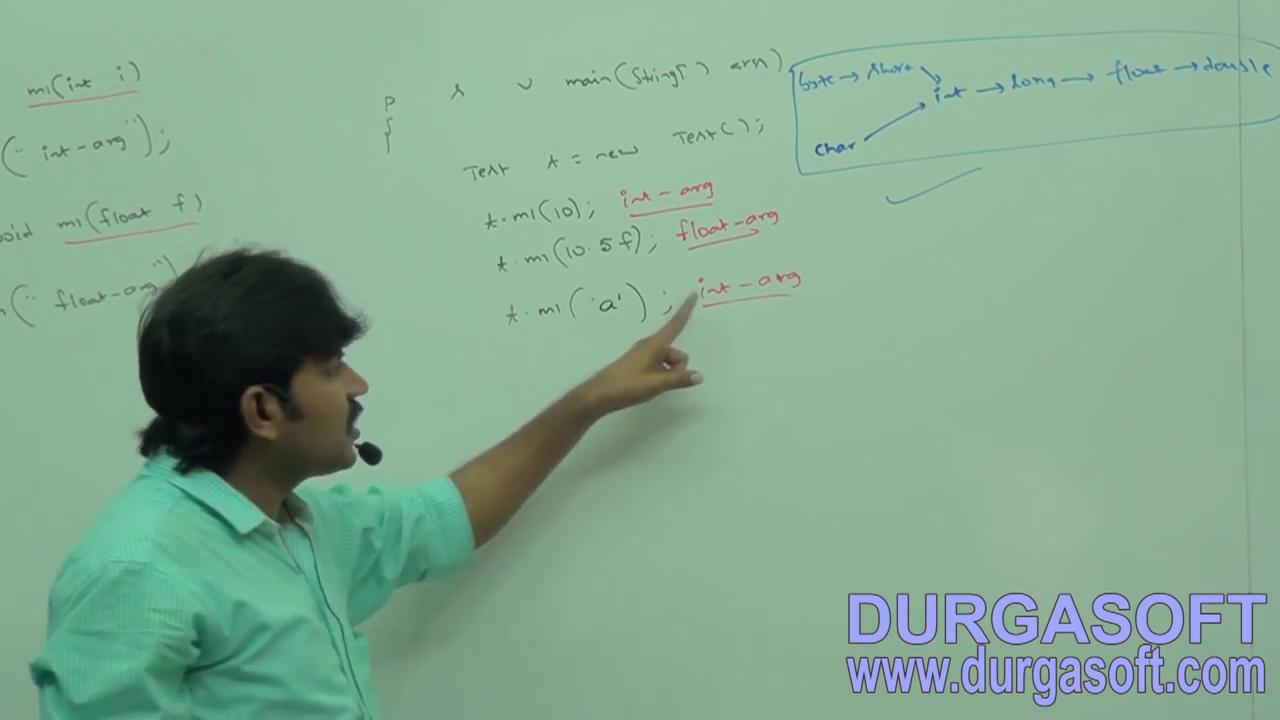 m1(int i)
(" int-arg");
void m1(float f)
(" float-arg")
P s v main(String[] args)
{
Test t = new Test();
t.m1(10); int-arg
t.m1(10.5f); float-arg
t.m1('a'); int-arg
byte → short
int → long → float → double
char
DURGASOFT
www.durgasoft.com